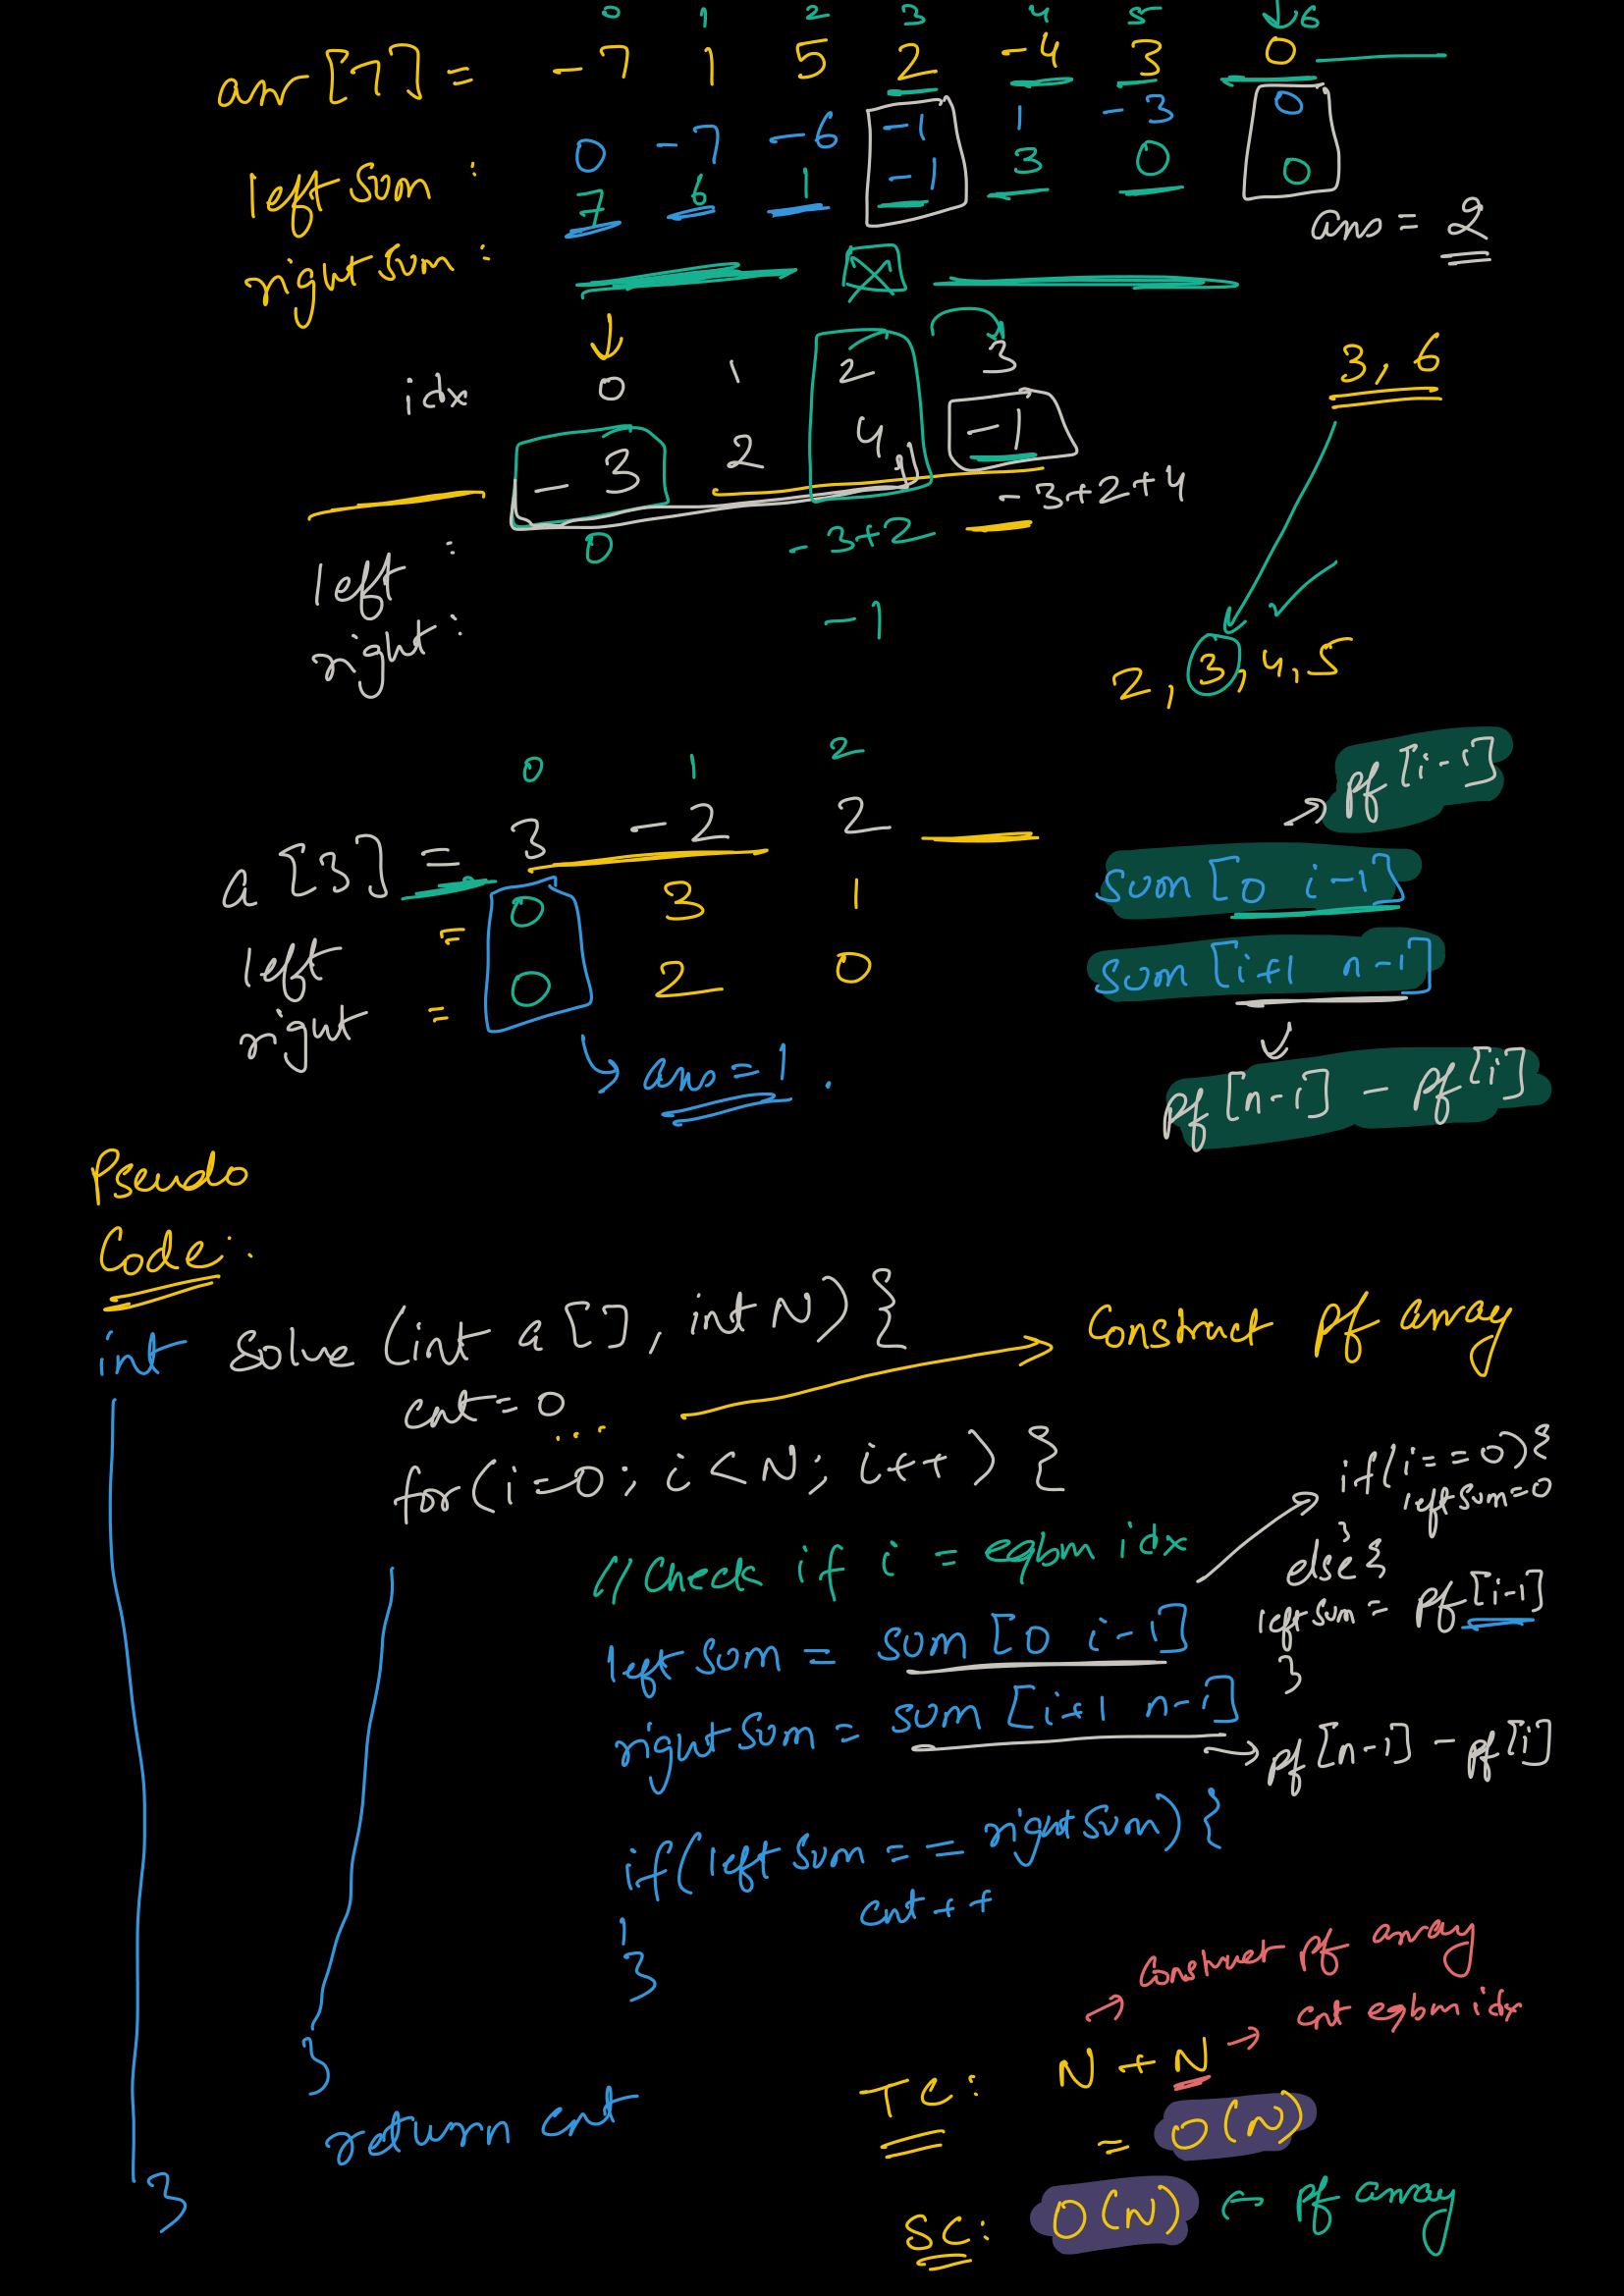 0 1 2 3 4 5 6
arr [7] = -7 1 5 2 -4 3 0
left sum : 0 -7 -6 -1 1 -3 0
right sum : 7 6 1 -1 3 0 0
ans = 2
idx 0 1 2 3
3, 6
-3 2 4 -1
-3+2+4
left : 0 -3+2
right : -1
2, 3, 4, 5
0 1 2
a [3] = 3 -2 2
left = 0 3 1
right = 0 2 0
ans = 1 .
pf [i-1]
sum [0 i-1]
sum [i+1 n-1]
pf [n-1] - pf [i]
Pseudo
Code :
int solve (int a [], int N) {
Construct pf array
cnt = 0
...
for (i = 0; i < N; i++) {
// Check if i = eqbm idx
if (i == 0) {
left sum = 0
}
else {
left sum = pf [i-1]
}
left sum = sum [0 i-1]
right sum = sum [i+1 n-1]
pf [n-1] - pf [i]
if (left sum == right sum) {
cnt ++
}
}
return cnt
}
Construct pf array
cnt eqbm idx
TC : N + N
= O(N)
SC : O(N) ← pf array